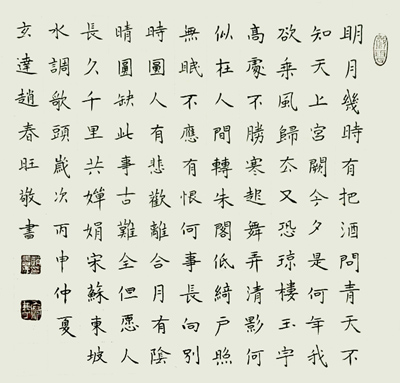 明月幾時有把酒問青天不
知天上宮闕今夕是何年我
欲乘風歸去又恐瓊樓玉宇
高處不勝寒起舞弄清影何
似在人間轉朱閣低綺戶照
無眠不應有恨何事長向別
時圓人有悲歡離合月有陰
晴圓缺此事古難全但愿人
長久千里共嬋娟宋蘇東坡
水調歌頭歲次丙申仲夏
玄達趙春旺敬書